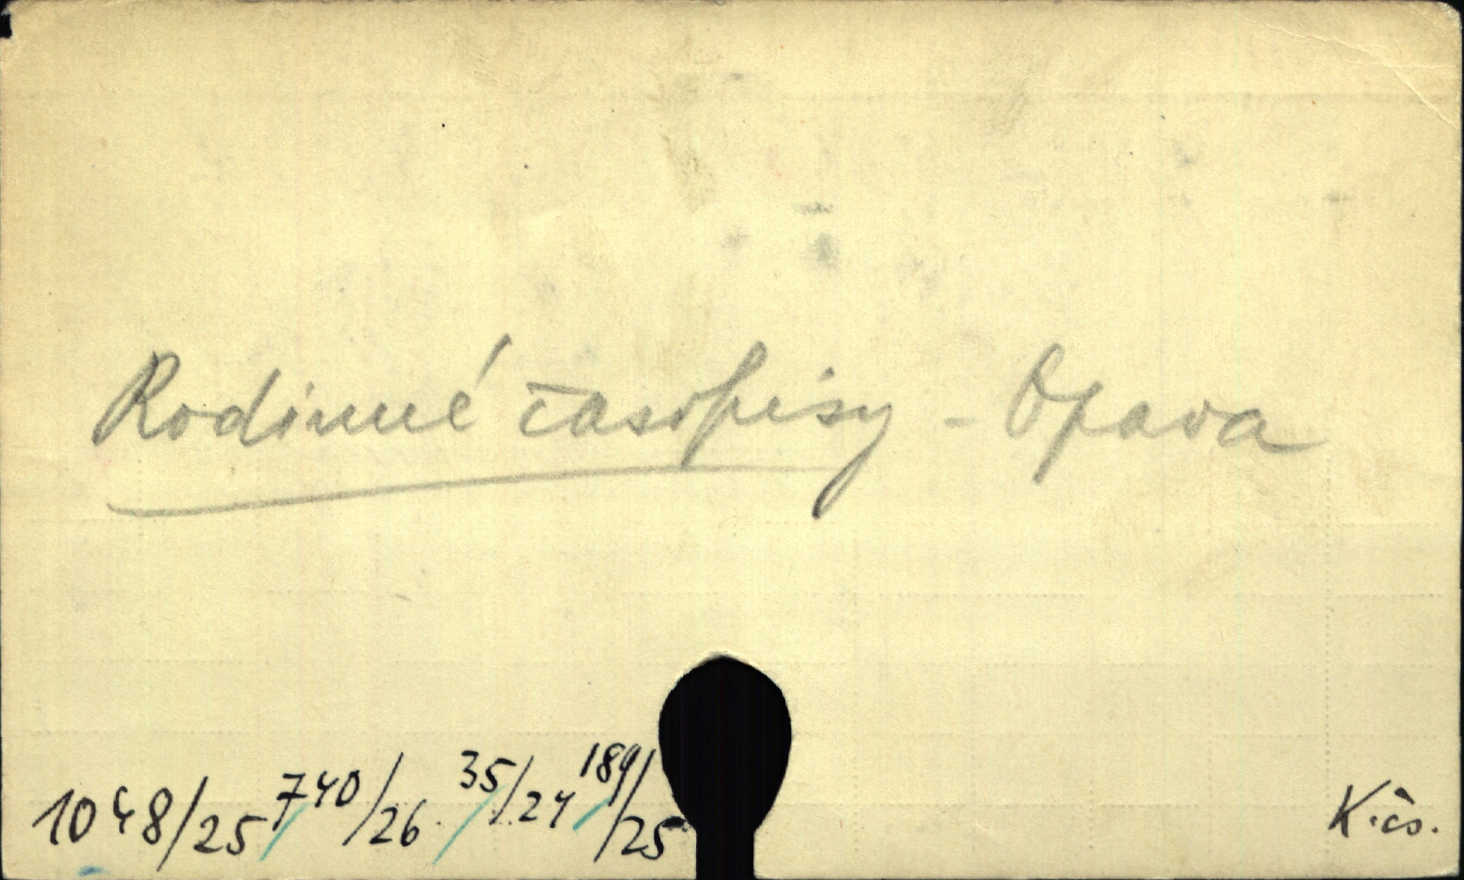 Rodinné časopisy - Opava
1048/25 740/26 35/24 189/25 K.čs.